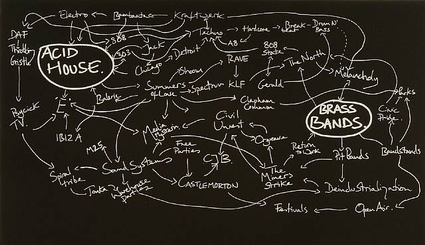 Electro
Kraftwerk
DAF
Throbbing
Gristle
808
303
Jack
Techno
Hardcore
Break-
beat
Drum N'
Bass
Detroit
A8
808
State
The North
ACID
HOUSE.
Chicago
Shoom
RAVE
Melancholy
Summer
of Love
Spectrum
KLF
Gerald
Parks
Balearic
E
Clapham
Common
BRASS
BANDS.
Civic
Pride
Psychick
TV
IBIZA
Media
Civil
Unrest
M25
Free
Parties
CJB
Orgreave
Return
to Work
Pit Bands
Bandstands
Spiral
Tribe
Sound Systems
Tonka
Warehouse
parties
CASTLEMORTON
The
Miners
Strike
Deindustrialization
Festivals
Open Air.